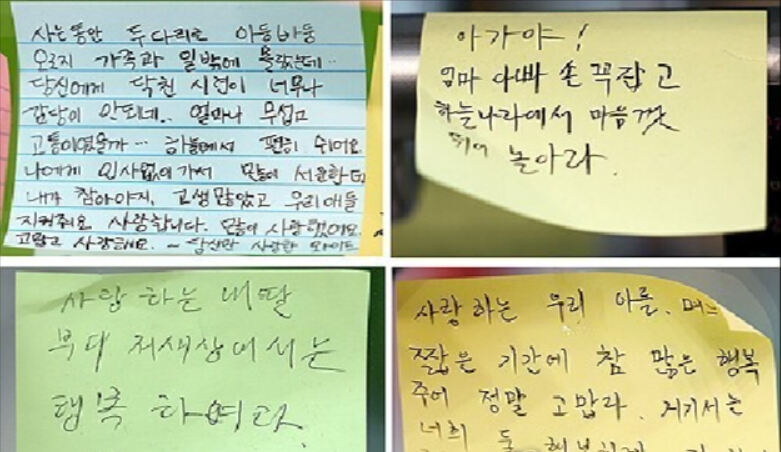 사는동안 두다리로 아둥바둥
오로지 가족과 일밖에 몰랐는데..
당신에게 닥친 시련이 너무나
감당이 안되네.. 얼마나 무섭고
고통이였을까... 하늘에서 편히 쉬어요
나에게 인사없이가서 많이 서운한데
내가 참아야지. 고생많았고 우리애들
지켜줘요 사랑합니다. 많이 사랑했어요.
고맙고 사랑해요. ~ 당신만 사랑한 와이프
아가야!
엄마 아빠 손 꼭잡고
하늘나라에서 마음껏
뛰어 놀아라.
사랑하는 내딸
부디 저세상에서는
행복 하여라
사랑하는 우리 아들.
짧은 기간에 참 많은 행복
주어 정말 고맙라. 거기서는
너희 둘